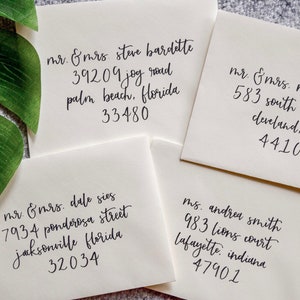 mr. & mrs. steve bardette
39209 jog road
palm beach, florida
33480
mr. & mrs.
583 south
cleveland
4410
mr. & mrs. dale sies
7934 ponderosa street
jacksonville florida
32034
ms. andrea smith
983 lions court
lafayette, indiana
47901